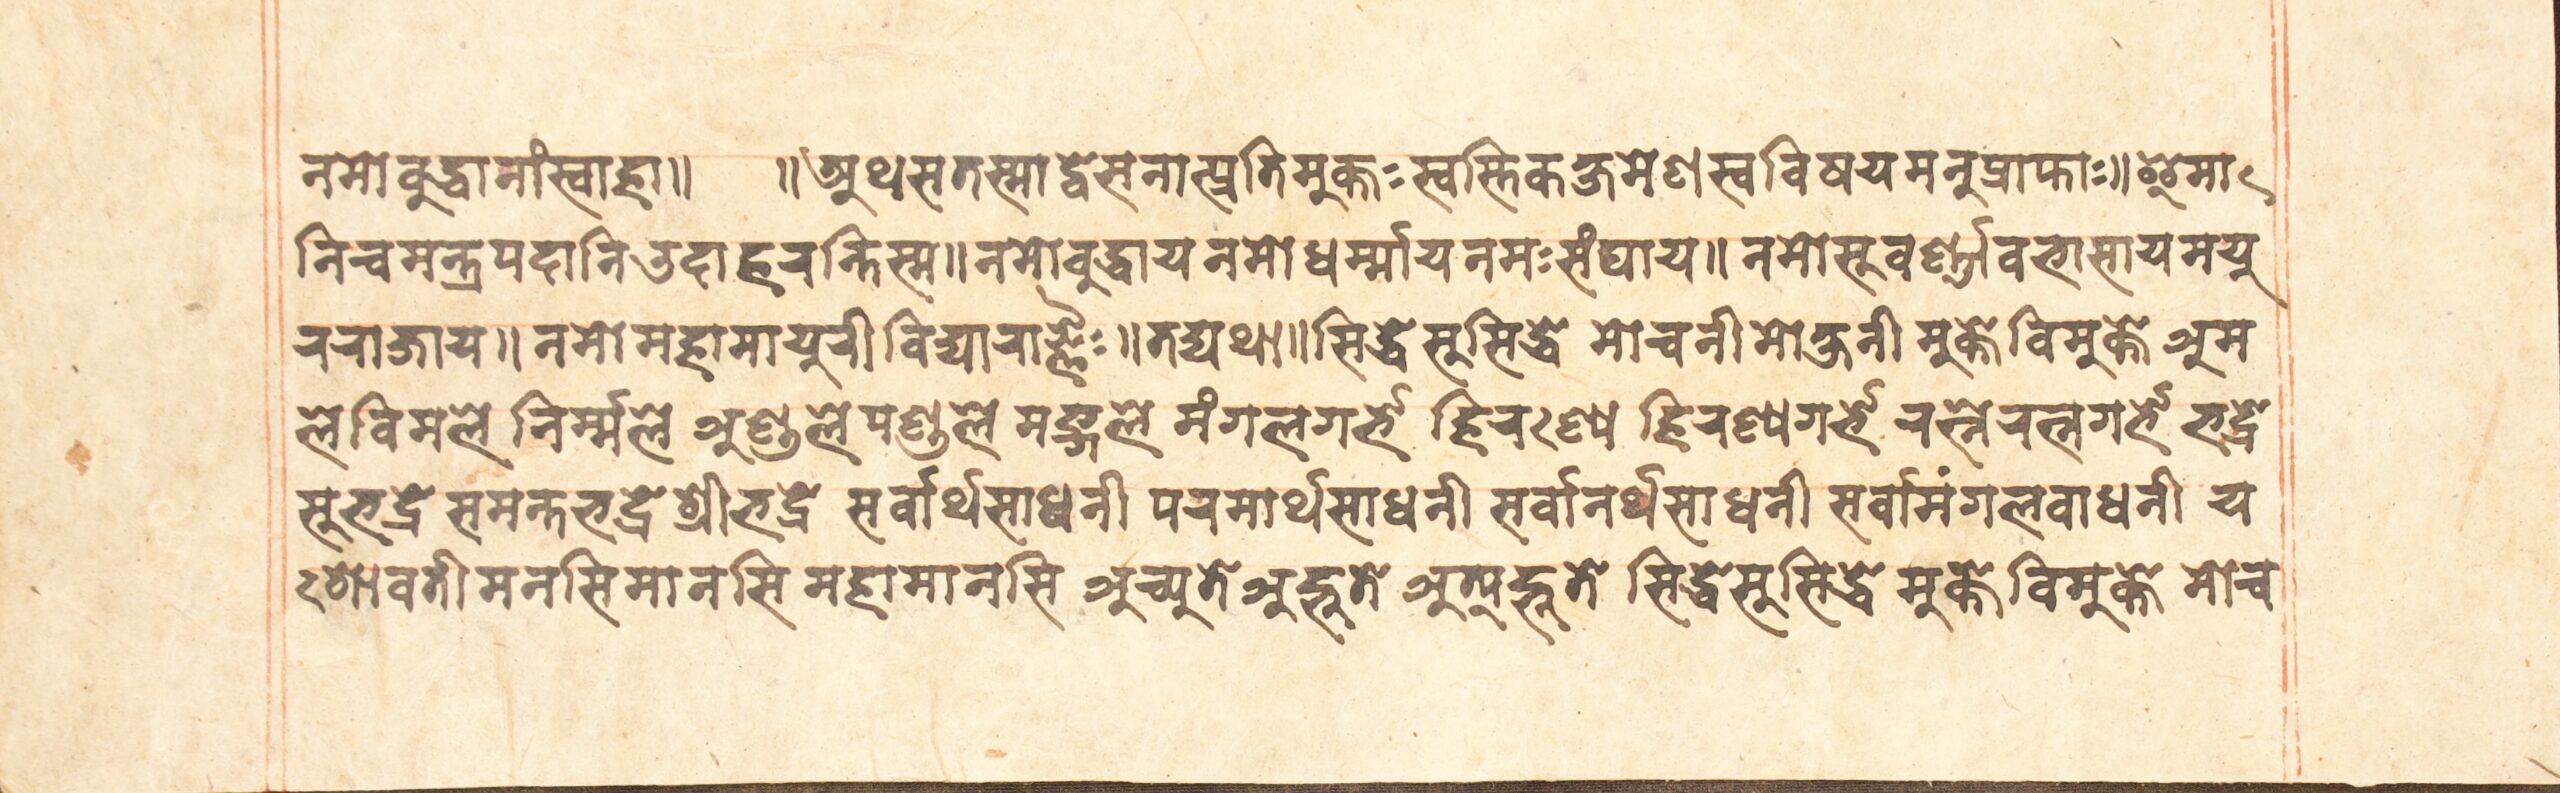 नमोबुद्धानांस्वाहा॥ ॥अथसतस्माद्वेसनात्प्रतिमुक्तःस्वस्तिकक्षमेणस्वविषयमनुप्राप्ताः॥इमा
निचमन्त्रपदानिउदाहरन्तिस्म॥नमोबुद्धायनमोधर्म्मायनमःसंघाय॥नमोसुवर्ण्णावभासायमयु
रराजाय॥नमोमहामायुरीविद्याराज्ञैः॥तद्यथा॥सिद्धेसुसिद्धे मोचनीमोक्षनी मुक्तेविमुक्ते अम
लेविमले निर्म्मले अण्डलेपण्डले मङ्गले मंगलगर्भे हिरण्य हिरण्यगर्भे रत्नेरत्नगर्भे भद्रे
सुभद्रे समन्तभद्रेश्रीभद्रे सर्वार्थसाधनी परमार्थसाधनी सर्वानर्थसाधनी सर्वामंगलवाधनी य
शोवतीमनसिमानसि महामानसि अच्युतेअद्भुते अत्यद्भुते सिद्धेसुसिद्धे मुक्तेविमुक्ते मोच